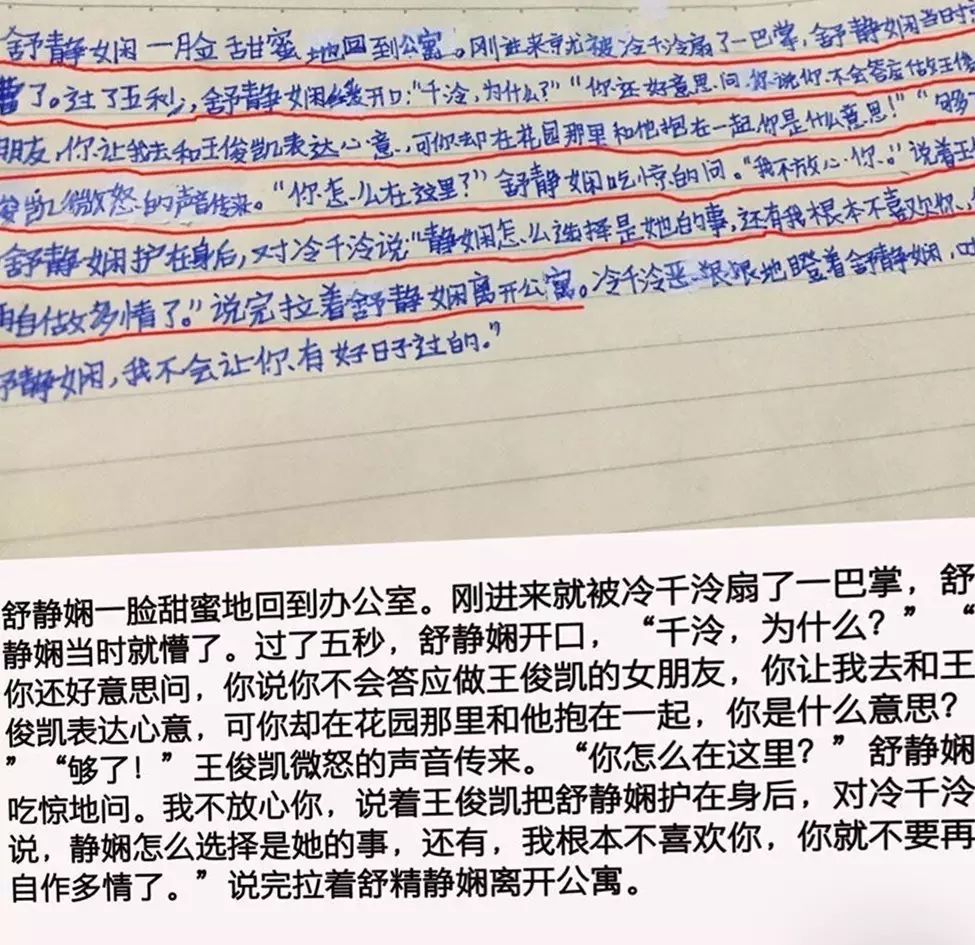 舒静娴一脸甜蜜地回到公寓。刚进来就被冷千泠扇了一巴掌,舒静娴当时就
懵了。过了五秒,舒静娴缓开口:"千泠,为什么?""你还好意思问,你说你不会答应做王俊
朋友,你让我去和王俊凯表达心意,可你却在花园那里和他抱在一起,你是什么意思!""够
俊凯微怒的声音传来。"你怎么在这里?"舒静娴吃惊的问。"我不放心你。"说着王
舒静娴护在身后,对冷千泠说"静娴怎么选择是她的事,还有我根本不喜欢你,
再自做多情了。"说完拉着舒静娴离开公寓。冷千泠恶狠狠地瞪着舒静娴,
舒静娴,我不会让你有好日子过的。"
舒静娴一脸甜蜜地回到办公室。刚进来就被冷千泠扇了一巴掌,舒
静娴当时就懵了。过了五秒,舒静娴开口,“千泠,为什么?”“
你还好意思问,你说你不会答应做王俊凯的女朋友,你让我去和王
俊凯表达心意,可你却在花园那里和他抱在一起,你是什么意思?
”“够了!”王俊凯微怒的声音传来。“你怎么在这里?”舒静娴
吃惊地问。我不放心你,说着王俊凯把舒静娴护在身后,对冷千泠
说,静娴怎么选择是她的事,还有,我根本不喜欢你,你就不要再
自作多情了。”说完拉着舒精静娴离开公寓。